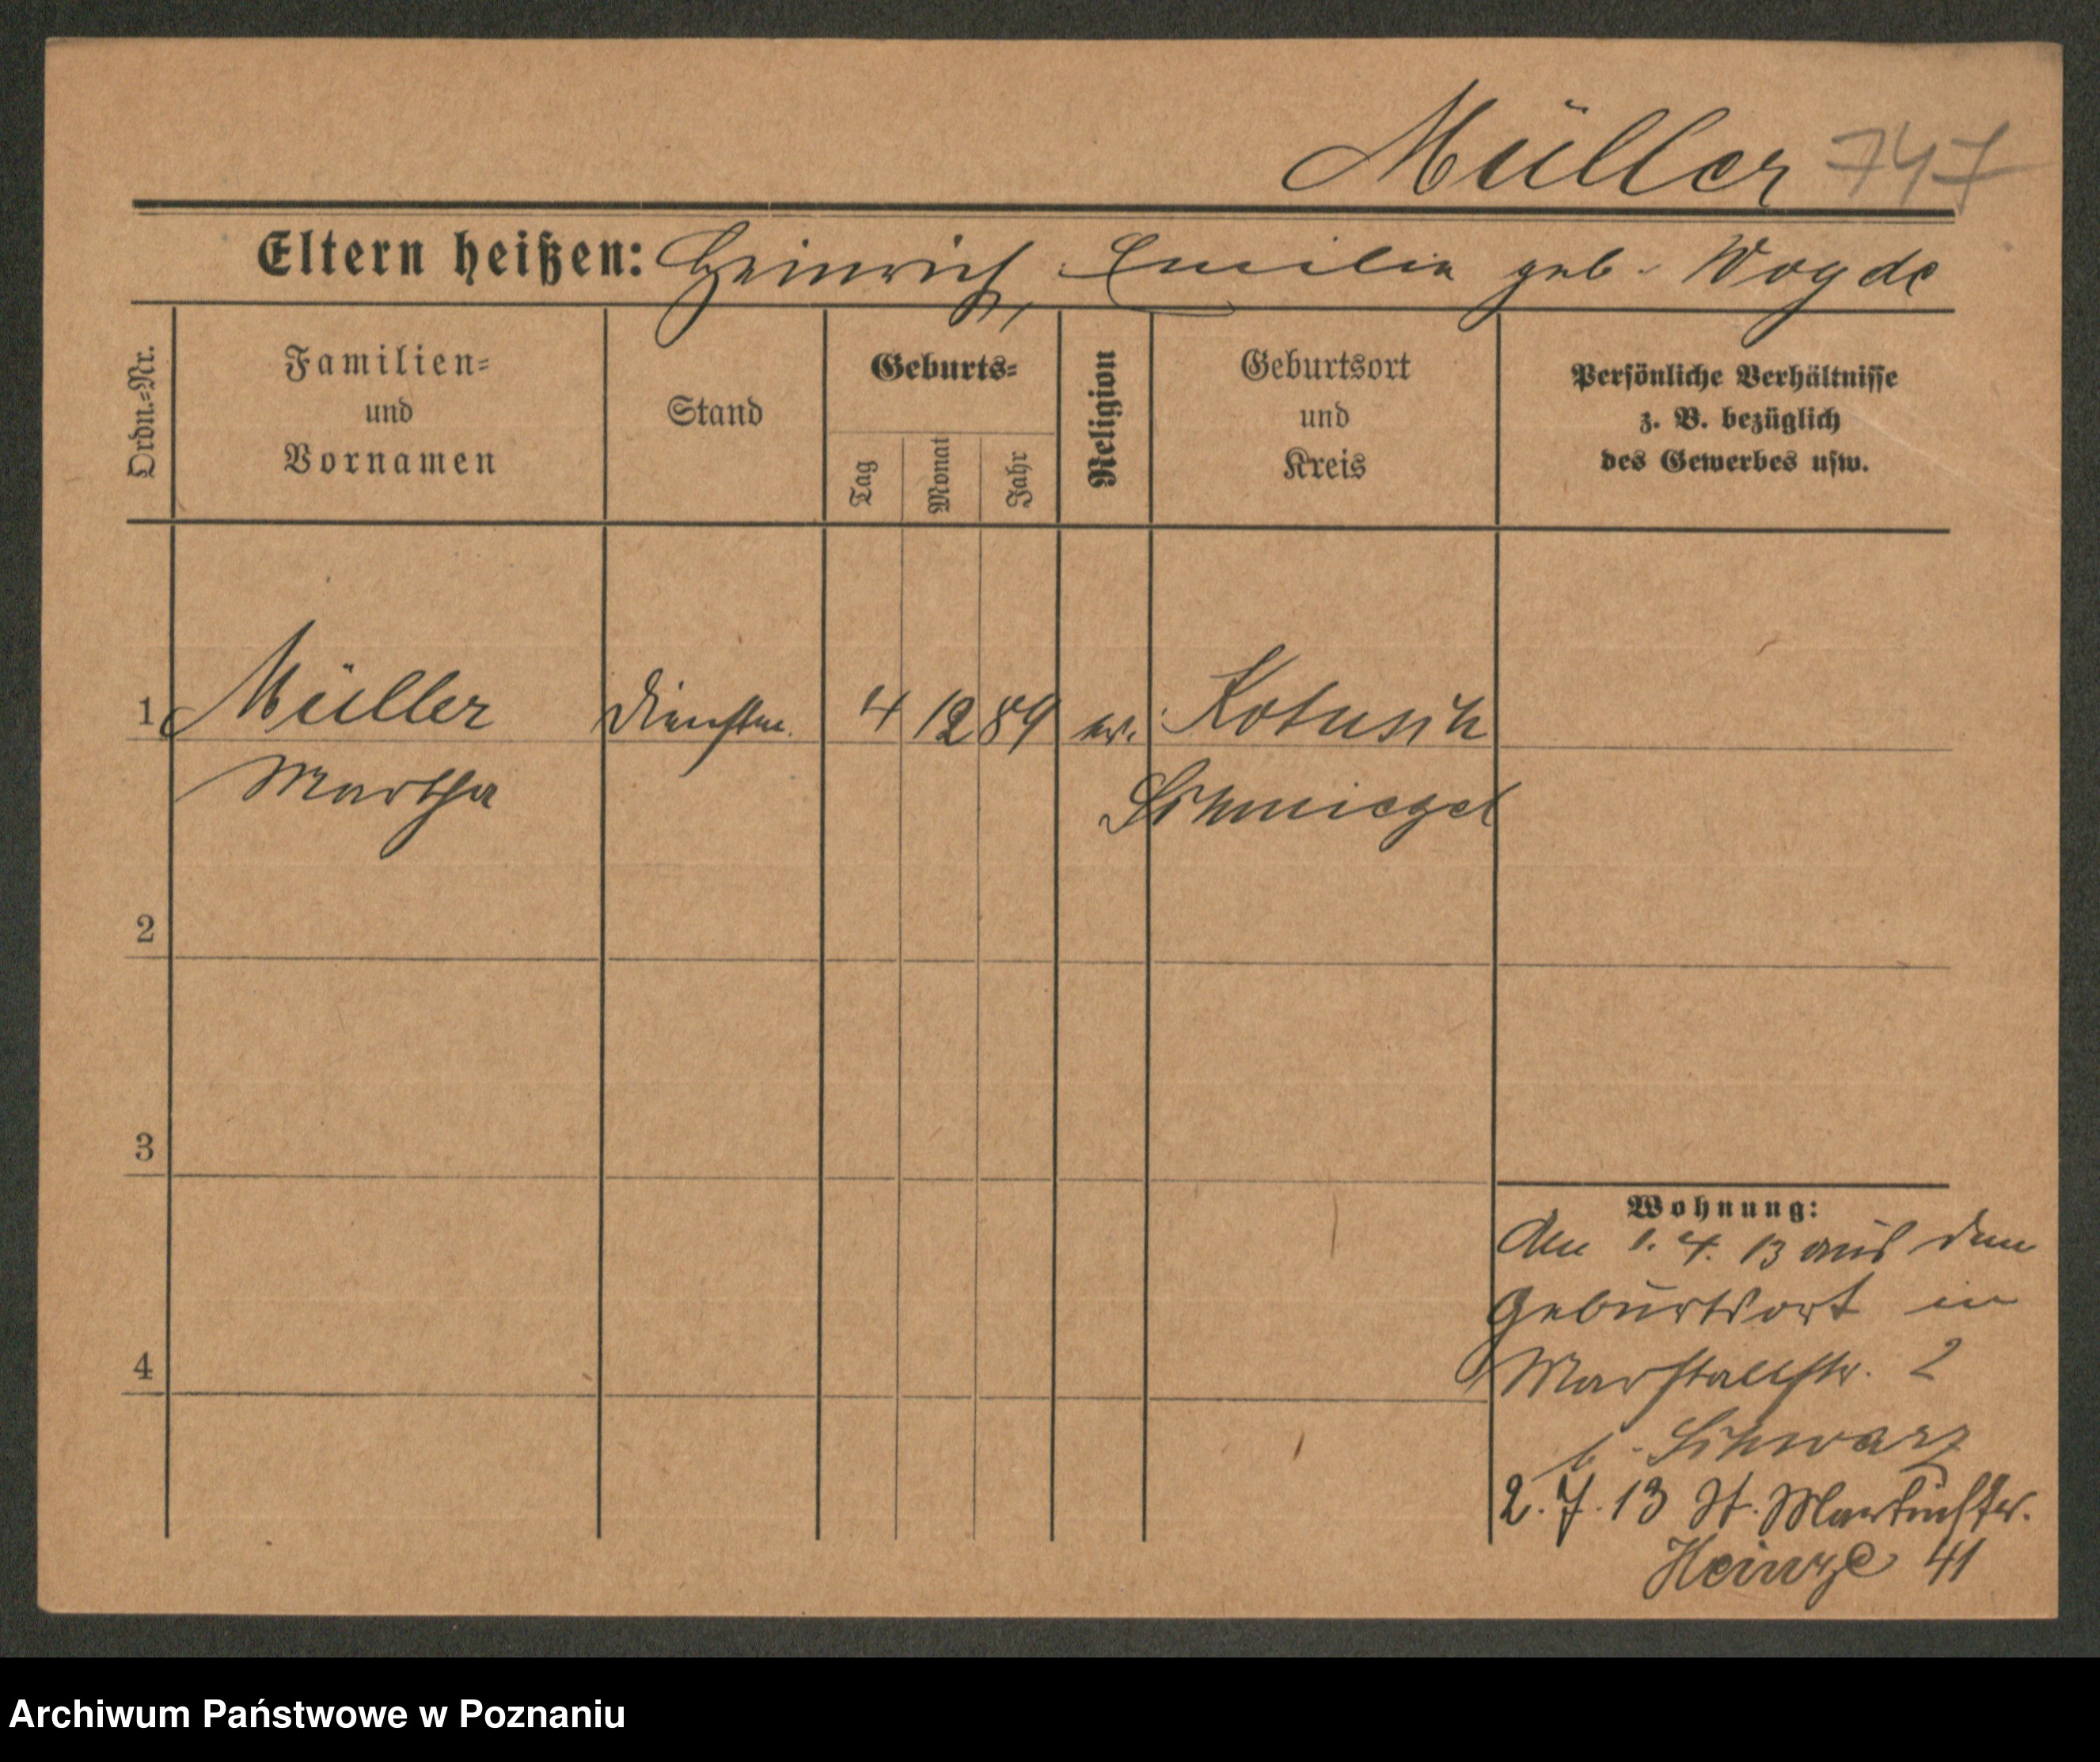 Müller 747
Eltern heißen: Heinrich, Emilie geb. Wogde
Ordn.=Nr.
Familien=
und
Vornamen
Stand
Geburts=
Tag
Monat
Jahr
Religion
Geburtsort
und
Kreis
Persönliche Verhältnisse
z. B. bezüglich
des Gewerbes usw.
1 Müller Dienstm. 4 12 89 ev. Kotusch
Martha Schmiegel
2
3
4
Wohnung:
Am 1. 4. 13 aus dem
Geburtsort in
Marstallstr. 2
b. Schwarz
2. 7. 13 St. Martinstr.
Heinze 41
Archiwum Państwowe w Poznaniu